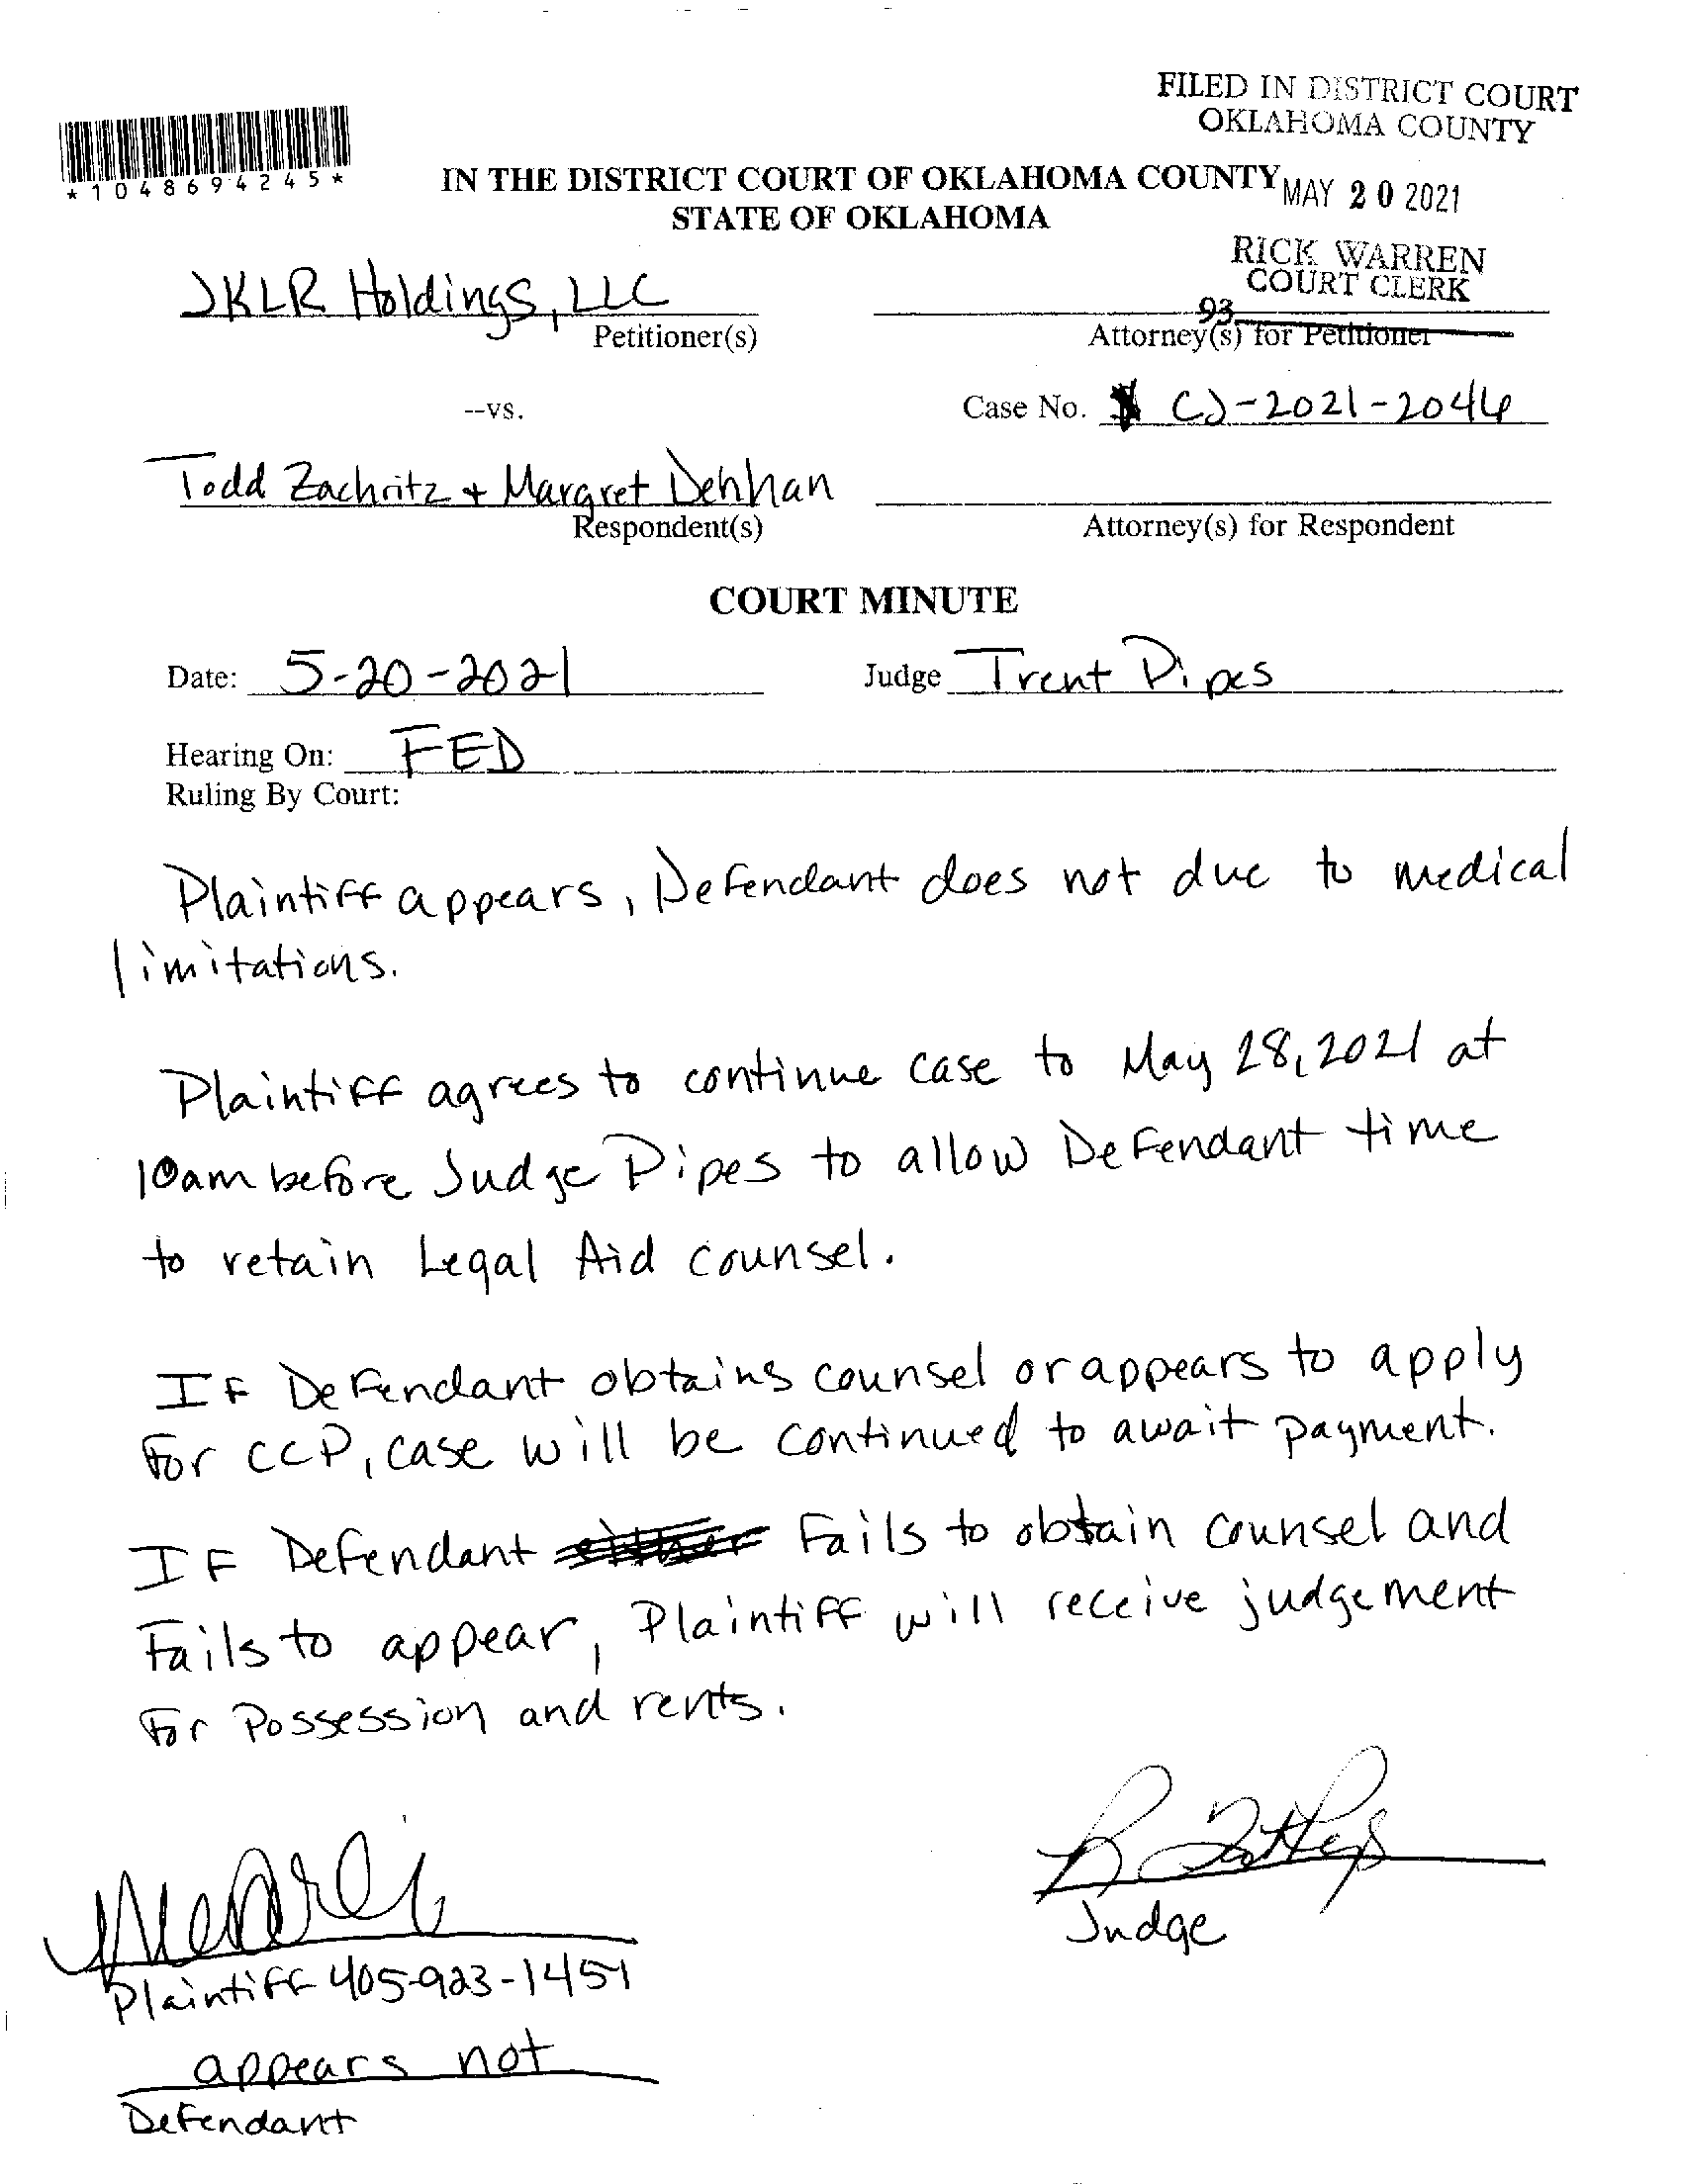 FILED IN DISTRICT COURT
OKLAHOMA COUNTY
*1048694245*
IN THE DISTRICT COURT OF OKLAHOMA COUNTY
MAY 20 2021
STATE OF OKLAHOMA
RICK WARREN
COURT CLERK
JKLR Holdings, LLC
93
Petitioner(s)
Attorney(s) for Petitioner
--vs.
Case No. CJ-2021-2044
Todd Zachritz + Margret Dehhan
Respondent(s)
Attorney(s) for Respondent
COURT MINUTE
Date: 5-20-2021
Judge Trent Pipes
Hearing On: FED
Ruling By Court:
Plaintiff appears, Defendant does not due to medical
limitations.
Plaintiff agrees to continue case to May 28, 2021 at
10am before Judge Pipes to allow Defendant time
to retain Legal Aid counsel.
If Defendant obtains counsel or appears to apply
for CCP, case will be continued to await payment.
If Defendant either Fails to obtain counsel and
Fails to appear, Plaintiff will receive judgement
For Possession and rents.
Judge
Plaintiff 405-923-1451
appears not
Defendant